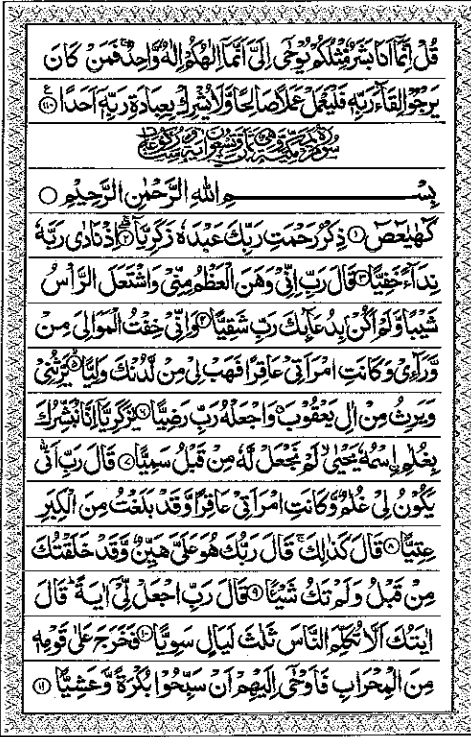 قُلْ اِنَّمَاۤ اَنَا بَشَرٌ مِّثْلُكُمْ يُوْحٰۤى اِلَيَّ اَنَّمَاۤ اِلٰهُكُمْ اِلٰهٌ وَّاحِدٌ ۚ فَمَنْ كَانَ
يَرْجُوْا لِقَآءَ رَبِّهٖ فَلْيَعْمَلْ عَمَلًا صَالِحًا وَّلَا يُشْرِكْ بِعِبَادَةِ رَبِّهٖۤ اَحَدًا ۝۱۱۰
بِسْمِ اللهِ الرَّحْمٰنِ الرَّحِيْمِ ۝
كٓهٰيٰعٓصٓ ۝۱ ذِكْرُ رَحْمَتِ رَبِّكَ عَبْدَهٗ زَكَرِيَّا ۝۲ اِذْ نَادٰى رَبَّهٗ
نِدَآءً خَفِيًّا ۝۳ قَالَ رَبِّ اِنِّيْ وَهَنَ الْعَظْمُ مِنِّيْ وَاشْتَعَلَ الرَّاْسُ
شَيْبًا وَّلَمْ اَكُنْۢ بِدُعَآئِكَ رَبِّ شَقِيًّا ۝۴ وَاِنِّيْ خِفْتُ الْمَوَالِيَ مِنْ
وَّرَآءِيْ وَكَانَتِ امْرَاَتِيْ عَاقِرًا فَهَبْ لِيْ مِنْ لَّدُنْكَ وَلِيًّا ۝۵ يَّرِثُنِيْ
وَيَرِثُ مِنْ اٰلِ يَعْقُوْبَ ۖ وَاجْعَلْهُ رَبِّ رَضِيًّا ۝۶ يٰزَكَرِيَّاۤ اِنَّا نُبَشِّرُكَ
بِغُلٰمِ ۨاسْمُهٗ يَحْيٰى ۙ لَمْ نَجْعَلْ لَّهٗ مِنْ قَبْلُ سَمِيًّا ۝۷ قَالَ رَبِّ اَنّٰى
يَكُوْنُ لِيْ غُلٰمٌ وَّكَانَتِ امْرَاَتِيْ عَاقِرًا وَّقَدْ بَلَغْتُ مِنَ الْكِبَرِ
عِتِيًّا ۝۸ قَالَ كَذٰلِكَ ۚ قَالَ رَبُّكَ هُوَ عَلَيَّ هَيِّنٌ وَّقَدْ خَلَقْتُكَ
مِنْ قَبْلُ وَلَمْ تَكُ شَيْئًا ۝۹ قَالَ رَبِّ اجْعَلْ لِّيْۤ اٰيَةً ؕ قَالَ
اٰيَتُكَ اَلَّا تُكَلِّمَ النَّاسَ ثَلٰثَ لَيَالٍ سَوِيًّا ۝۱۰ فَخَرَجَ عَلٰى قَوْمِهٖ
مِنَ الْمِحْرَابِ فَاَوْحٰۤى اِلَيْهِمْ اَنْ سَبِّحُوْا بُكْرَةً وَّعَشِيًّا ۝۱۱